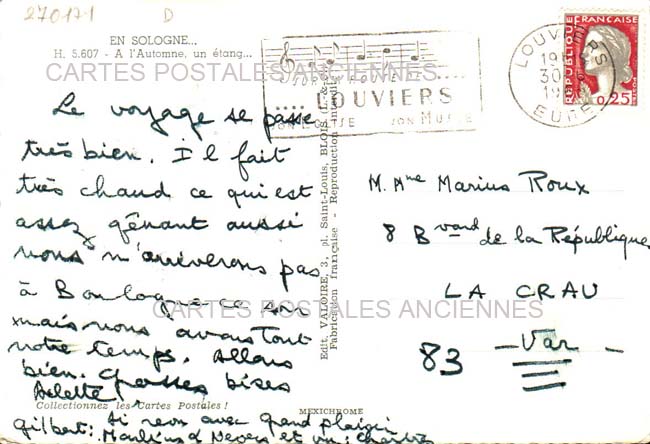 270171 D
EN SOLOGNE...
H. 5.607 - A l'Automne, un étang...
CARTES POSTALES ANCIENNES
LOUVIERS
SON EGLISE SON MUSEE
LOUVIERS
19
30
19
EURE
REPUBLIQUE FRANCAISE
0,25
Le voyage se passe
très bien. Il fait
très chaud ce qui est
assez gênant aussi
nous n'arriverons pas
à Boulogne ce soir
mais nous avons tout
notre temps. Allons
bien. Grosses bises
Arlette
Collectionnez les Cartes Postales !
Gilbert: Ai revu avec grand plaisir
Moulins & Nevers et vu: Chartres
Edit. VALOIRE, 3, pl. Saint-Louis, BLOIS
Fabrication française - Reproduction interdite
MEXICHROME
M. Mme Marius Roux
8 Bvard de la République
LA CRAU
83 - Var -
CARTES POSTALES ANCIENNES